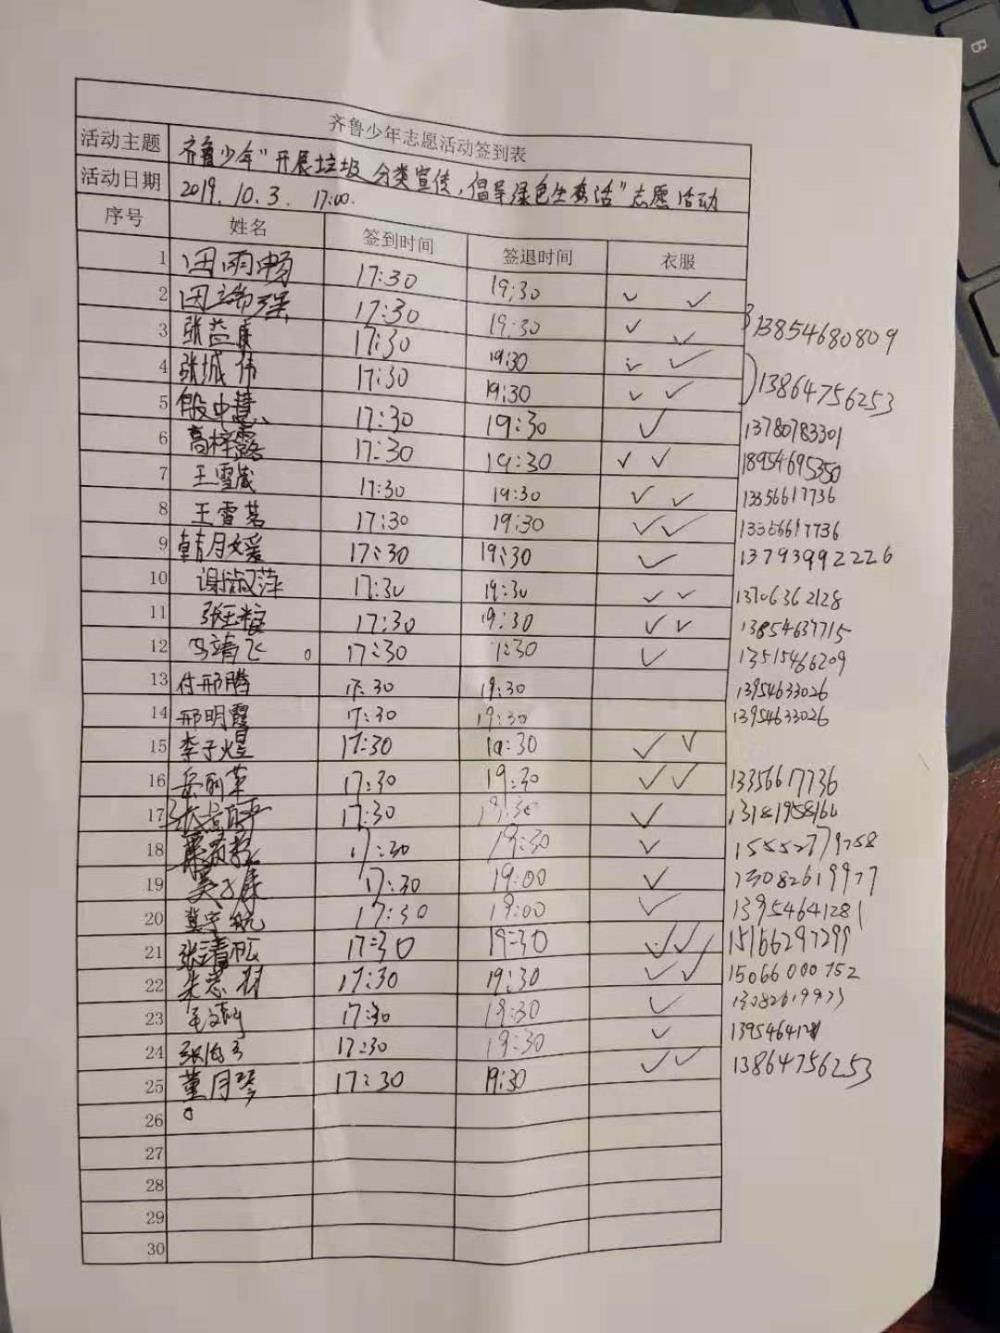 齐鲁少年志愿活动签到表
活动主题 齐鲁少年"开展垃圾分类宣传,倡导绿色生活"志愿活动
活动日期 2019.10.3. 17:00.
序号 姓名 签到时间 签退时间 衣服
1 田雨畅 17:30 19:30 ✓ ✓
2 田瑞琛 17:30 19:30 ✓ ✓ 13854680809
3 张益康 17:30 19:30 ✓ ✓
4 张城伟 17:30 19:30 ✓ ✓ 13864756253
5 殷中慧 17:30 19:30 ✓ 13780783301
6 高梓露 17:30 19:30 ✓ ✓ 18954695350
7 王雪葳 17:30 19:30 ✓ ✓ 13356617736
8 王雪茗 17:30 19:30 ✓ ✓ 13356617736
9 韩月媛 17:30 19:30 ✓ 13793992226
10 谢淑萍 17:30 19:30 ✓ ✓ 13706362128
11 17:30 19:30 ✓ ✓ 13854637715
12 马靖飞 17:30 ✓ 13515466209
13 付邢腾 17:30 19:30 13954633026
14 邢明霞 17:30 19:30 13954633026
15 李子煌 17:30 19:30 ✓ ✓
16 17:30 19:30 ✓ ✓ 13356617736
17 17:30 19:30 ✓
18 17:30 19:30 ✓ 15552779758
19 17:30 19:00 ✓ 13082619977
20 冀宇航 17:30 19:00 ✓ 13954641281
21 张清松 17:30 19:30 ✓ ✓ 15166297299
22 17:30 19:30 ✓ ✓ 15066000752
23 17:30 19:30 ✓
24 17:30 19:30 ✓
25 董月琴 17:30 19:30 ✓ ✓ 13864756253
26
27
28
29
30